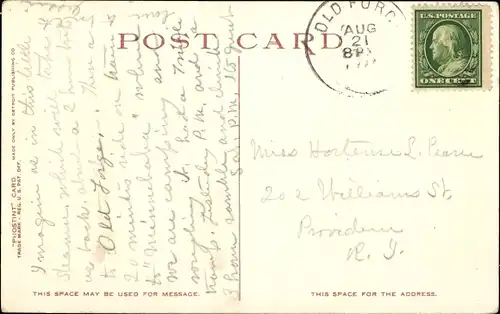 POST CARD
OLD FORG
AUG
21
8 P
U.S. POSTAGE
ONE CENT
"PHOSTINT" CARD
TRADE MARK - REG. U.S. PAT. OFF.
MADE ONLY BY DETROIT PUBLISHING CO.
I imagine us in this little
steamer which will take
us back, about a 2 hour trip
to Old Forge. Then a
20 minutes ride on train
to "Minnehaha" where
we are camping and
roughing it. Had a 7 mile
tramp yesterday P.M. and a
3 hour ramble and climb
P.M. 15
Miss Hortense L. Pearce
202 Williams St.
Providence
R. I.
THIS SPACE MAY BE USED FOR MESSAGE.
THIS SPACE FOR THE ADDRESS.